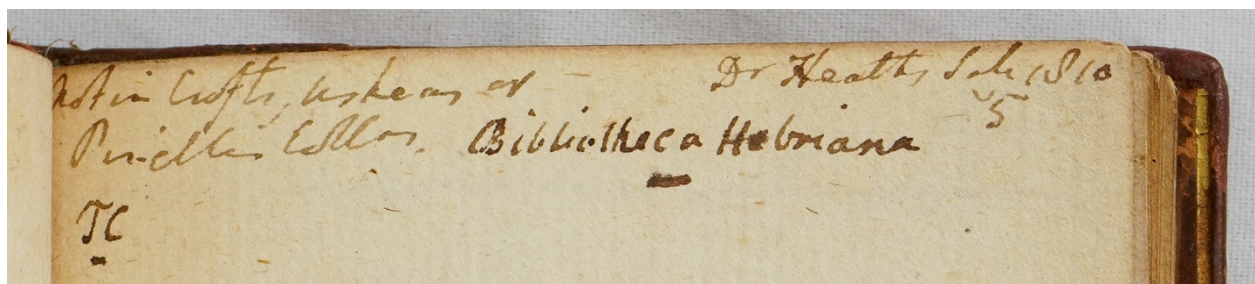 not in Crofts, Askews or – Dr Heaths Sale 1810
5
Pinellis Bibliotheca Hebriana
TC